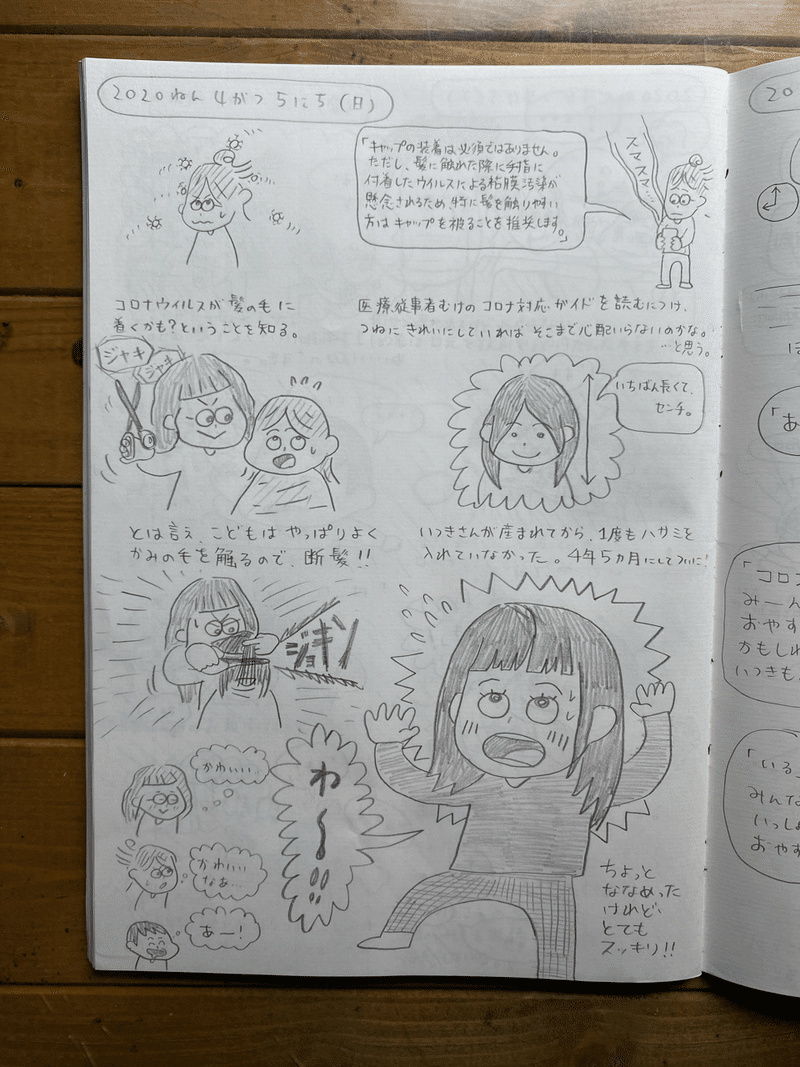 2020ねん 4がつ 5にち (日)
「キャップの装着は必須ではありません。
ただし、髪に触れた際に手指に
付着したウイルスによる粘膜汚染が
懸念されるため、特に髪を触りやすい
方はキャップを被ることを推奨します。」
スマスマ…
コロナウイルスが髪の毛に
着くかも?ということを知る。
医療従事者むけのコロナ対応ガイドを読むにつけ、
つねにきれいにしていればそこまで心配いらないのかな。
…と思う。
ジャキ
ジャキ
いちばん長くて、
センチ。
とは言え、こどもはやっぱりよく
かみの毛を触るので、断髪!!
いつきさんが産まれてから、1度もハサミを
入れていなかった。4年5ヵ月にしてついに!
ジョキン
かわいい。
かわいい
なぁ…
あー!
わ〜!!
ちょっと
ななめった
けれど
とても
スッキリ!!
20
「あ
「コロ
みーん
おやす
かもしれ
いつきも
「いる
みんな
いっしょ
おやす